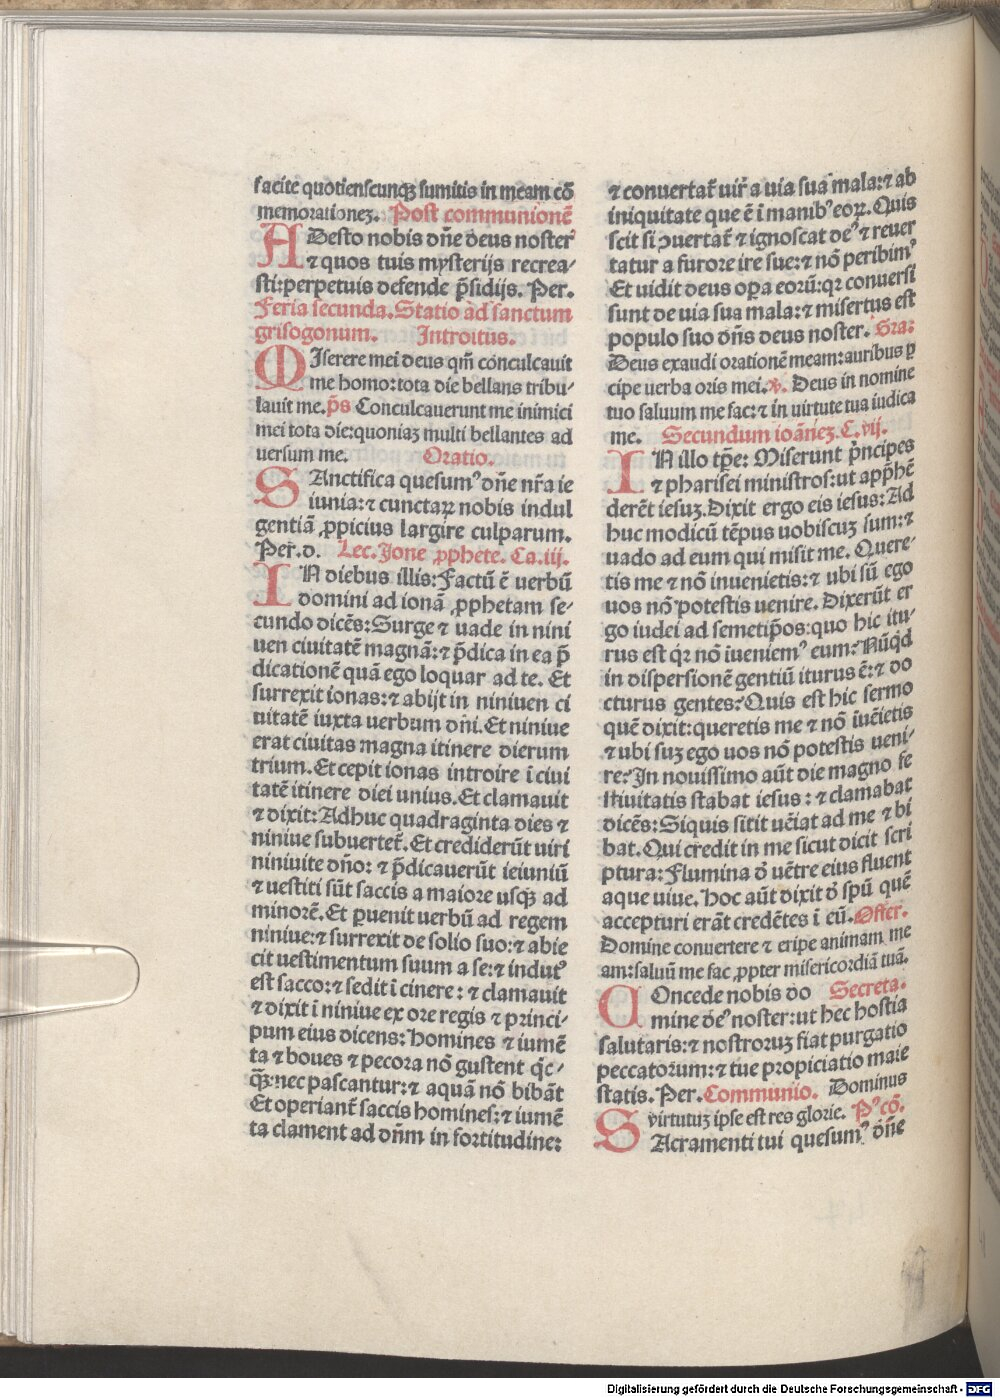 facite quotienscunqꝫ sumitis in meam cō
memorationeꝫ. Post communionē
ADesto nobis dñe deus noster
⁊ quos tuis mysterijs recrea⸗
sti: perpetuis defende p̄sidijs. Per.
Feria secunda. Statio ad sanctum
grisogonum. Introitus.
MIserere mei deus qm̄ conculcauit
me homo: tota die bellans tribu⸗
lauit me. p̄s Conculcauerunt me inimici
mei tota die: quoniaꝫ multi bellantes ad
uersum me. Oratio.
SAnctifica quesumꝰ dñe nr̄a ie
iunia: ⁊ cunctaꝝ nobis indul
gentiā ꝓpicius largire culparum.
Per.d. Lec. Ione ꝓphete. Ca.iij.
IN diebus illis: Factū ē uerbū
domini ad ionā ꝓphetam se⸗
cundo dicēs: Surge ⁊ uade in nini
uen ciuitatē magnā: ⁊ p̄dica in ea p̄
dicationē quā ego loquar ad te. Et
surrexit ionas: ⁊ abijt in niniuen ci
uitatē iuxta uerbum dñi. Et niniue
erat ciuitas magna itinere dierum
trium. Et cepit ionas introire ī ciui
tatē itinere diei unius. Et clamauit
⁊ dixit: Adhuc quadraginta dies ⁊
niniue subuertet̄. Et crediderūt uiri
niniuite dño: ⁊ p̄dicauerūt ieiuniū
⁊ uestiti sūt saccis a maiore usqꝫ ad
minorē. Et ꝑuenit uerbū ad regem
niniue: ⁊ surrexit de solio suo: ⁊ abie
cit uestimentum suum a se: ⁊ indutꝰ
est sacco: ⁊ sedit ī cinere: ⁊ clamauit
⁊ dixit ī niniue ex ore regis ⁊ princi⸗
pum eius dicens: Homines ⁊ iumē
ta ⁊ boues ⁊ pecora nō gustent q̄c⸗
qꝫ: nec pascantur: ⁊ aquā nō bibāt
Et operiant̄ saccis homines: ⁊ iumē
ta clament ad dñm in fortitudine:
⁊ conuertat̄ uir a uia sua mala: ⁊ ab
iniquitate que ē ī manibꝰ eoꝝ. Quis
scit si ↄuertat̄ ⁊ ignoscat deꝰ ⁊ reuer
tatur a furore ire sue: ⁊ nō peribimꝰ
Et uidit deus oꝑa eorū: qꝛ conuersi
sunt de uia sua mala: ⁊ misertus est
populo suo dñs deus noster. Gra:
Deus exaudi orationē meam: auribus ꝑ
cipe uerba oris mei. ℣. Deus in nomine
tuo saluum me fac: ⁊ in uirtute tua iudica
me. Secundum ioāneꝫ. C.vij.
IN illo tp̄e: Miserunt p̄ncipes
⁊ pharisei ministros: ut app̄hē
derēt iesuꝫ. Dixit ergo eis iesus: Ad
huc modicū tēpus uobiscuꝫ sum: ⁊
uado ad eum qui misit me. Quere⸗
tis me ⁊ nō inuenietis: ⁊ ubi sū ego
uos nō potestis uenire. Dixerūt er
go iudei ad semetip̄os: quo hic itu⸗
rus est qꝛ nō īueniemꝰ eum? Nūqͥd
in dispersionē gentiū iturus ē: ⁊ do
cturus gentes? Quis est hic sermo
quē dixit: queretis me ⁊ nō īuēietis
⁊ ubi suꝫ ego uos nō potestis ueni⸗
re? In nouissimo aūt die magno fe
stiuitatis stabat iesus: ⁊ clamabat
dicēs: Siquis sitit uēiat ad me ⁊ bi
bat. Qui credit in me sicut dicit scri
ptura: Flumina d̄ uētre eius fluent
aque uiue. Hoc aūt dixit d̄ spū quē
accepturi erāt credētes ī eū. Offer.
Domine conuertere ⁊ eripe animam me
am: saluū me fac ꝓpter misericordiā tuā.
COncede nobis do Secreta.
mine deꝰ noster: ut hec hostia
salutaris: ⁊ nostroruꝫ fiat purgatio
peccatorum: ⁊ tue propiciatio maie
statis. Per. Communio. Dominus
virtutuꝫ ipse est rex glorie. Pꝰ cō.
SAcramenti tui quesumꝰ dñe
Digitalisierung gefördert durch die Deutsche Forschungsgemeinschaft - DFG